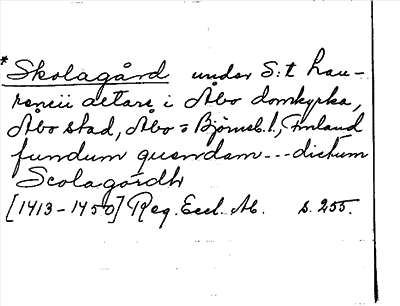 * Skolagård under S:t Lau-
rencii altare i Åbo domkyrka,
Åbo stad, Åbo = Björneb. l., Finland
fundum quendam --- dictum
Scolagårdh
[1413-1450] Reg. Eccl. Ab. s. 255.